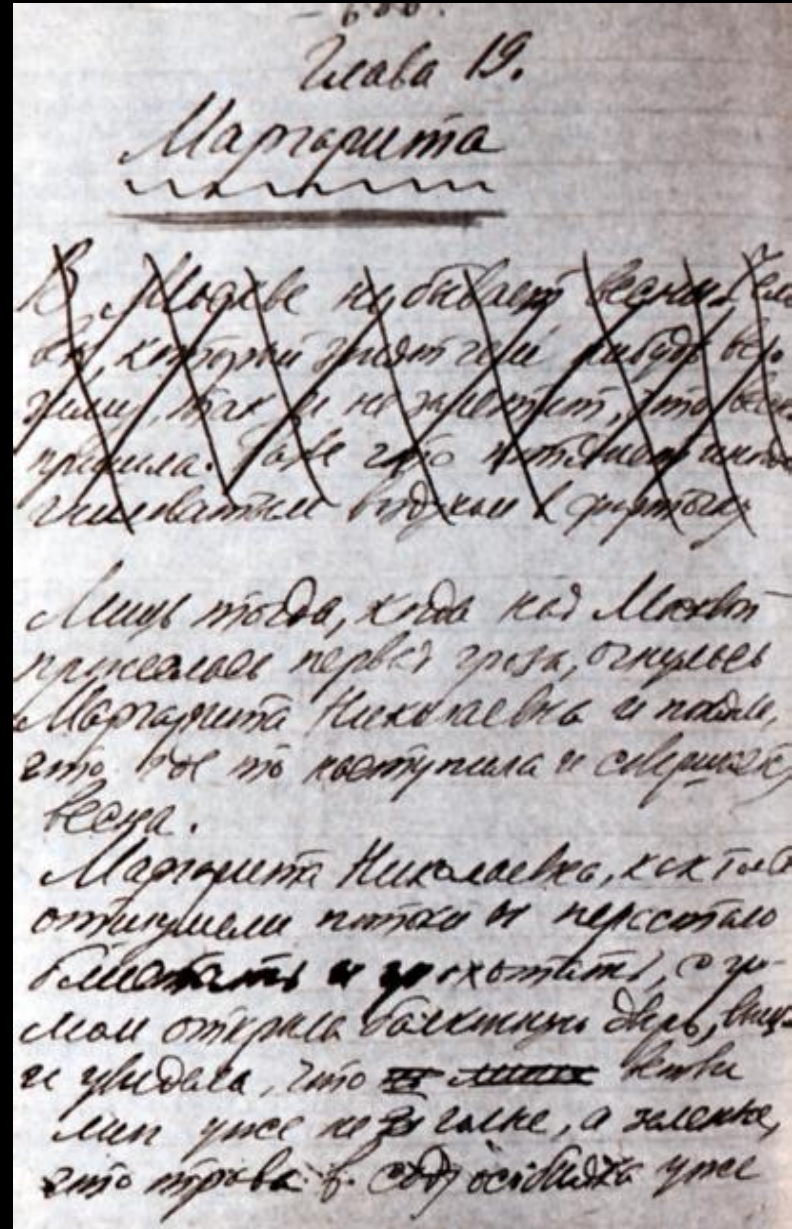 — 600.
Глава 19.
Маргарита
В Москве не бывает весны. Чело
век, который сидит
зиму, так и не заметит, что весна
пришла. Разве что потянет иногда
гниловатым воздухом в форточку
Лишь тогда, когда над Москвой
пронеслась первая гроза, очнулась
Маргарита Николаевна и поняла,
что где то наступила и совершается
весна.
Маргарита Николаевна, как только
отшумели потоки и перестало
блистать и грохотать, с гро-
мом открыла балконную дверь,
и увидела, что ветви
лип уже не голые, а зеленые,
что трава в саду особняка уже